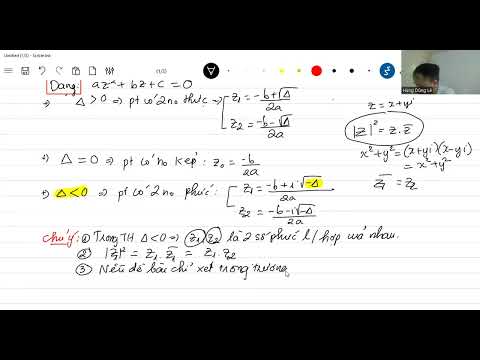 (1/2)
Hùng Dũng Lê
Dạng: az² + bz + c = 0
Δ > 0 => pt có 2 no thực
z₁ = -b+√Δ / 2a
z₂ = -b-√Δ / 2a
z = x + yi
|z|² = z . z̄
x² + y² = (x+yi)(x-yi)
= x² + y²
z̄₁ = z₂
Δ = 0 => pt có no kép : z₀ = -b / 2a
Δ < 0 => pt có 2 no phức:
z₁ = -b + i√-Δ / 2a
z₂ = -b - i√-Δ / 2a
Chú ý: ① Trong TH Δ < 0 => z₁, z₂ là 2 số phức l/hợp của nhau.
② |z₁|² = z₁ . z̄₁ = z₁ . z₂
③ Nếu đề bài chỉ xét trong trường